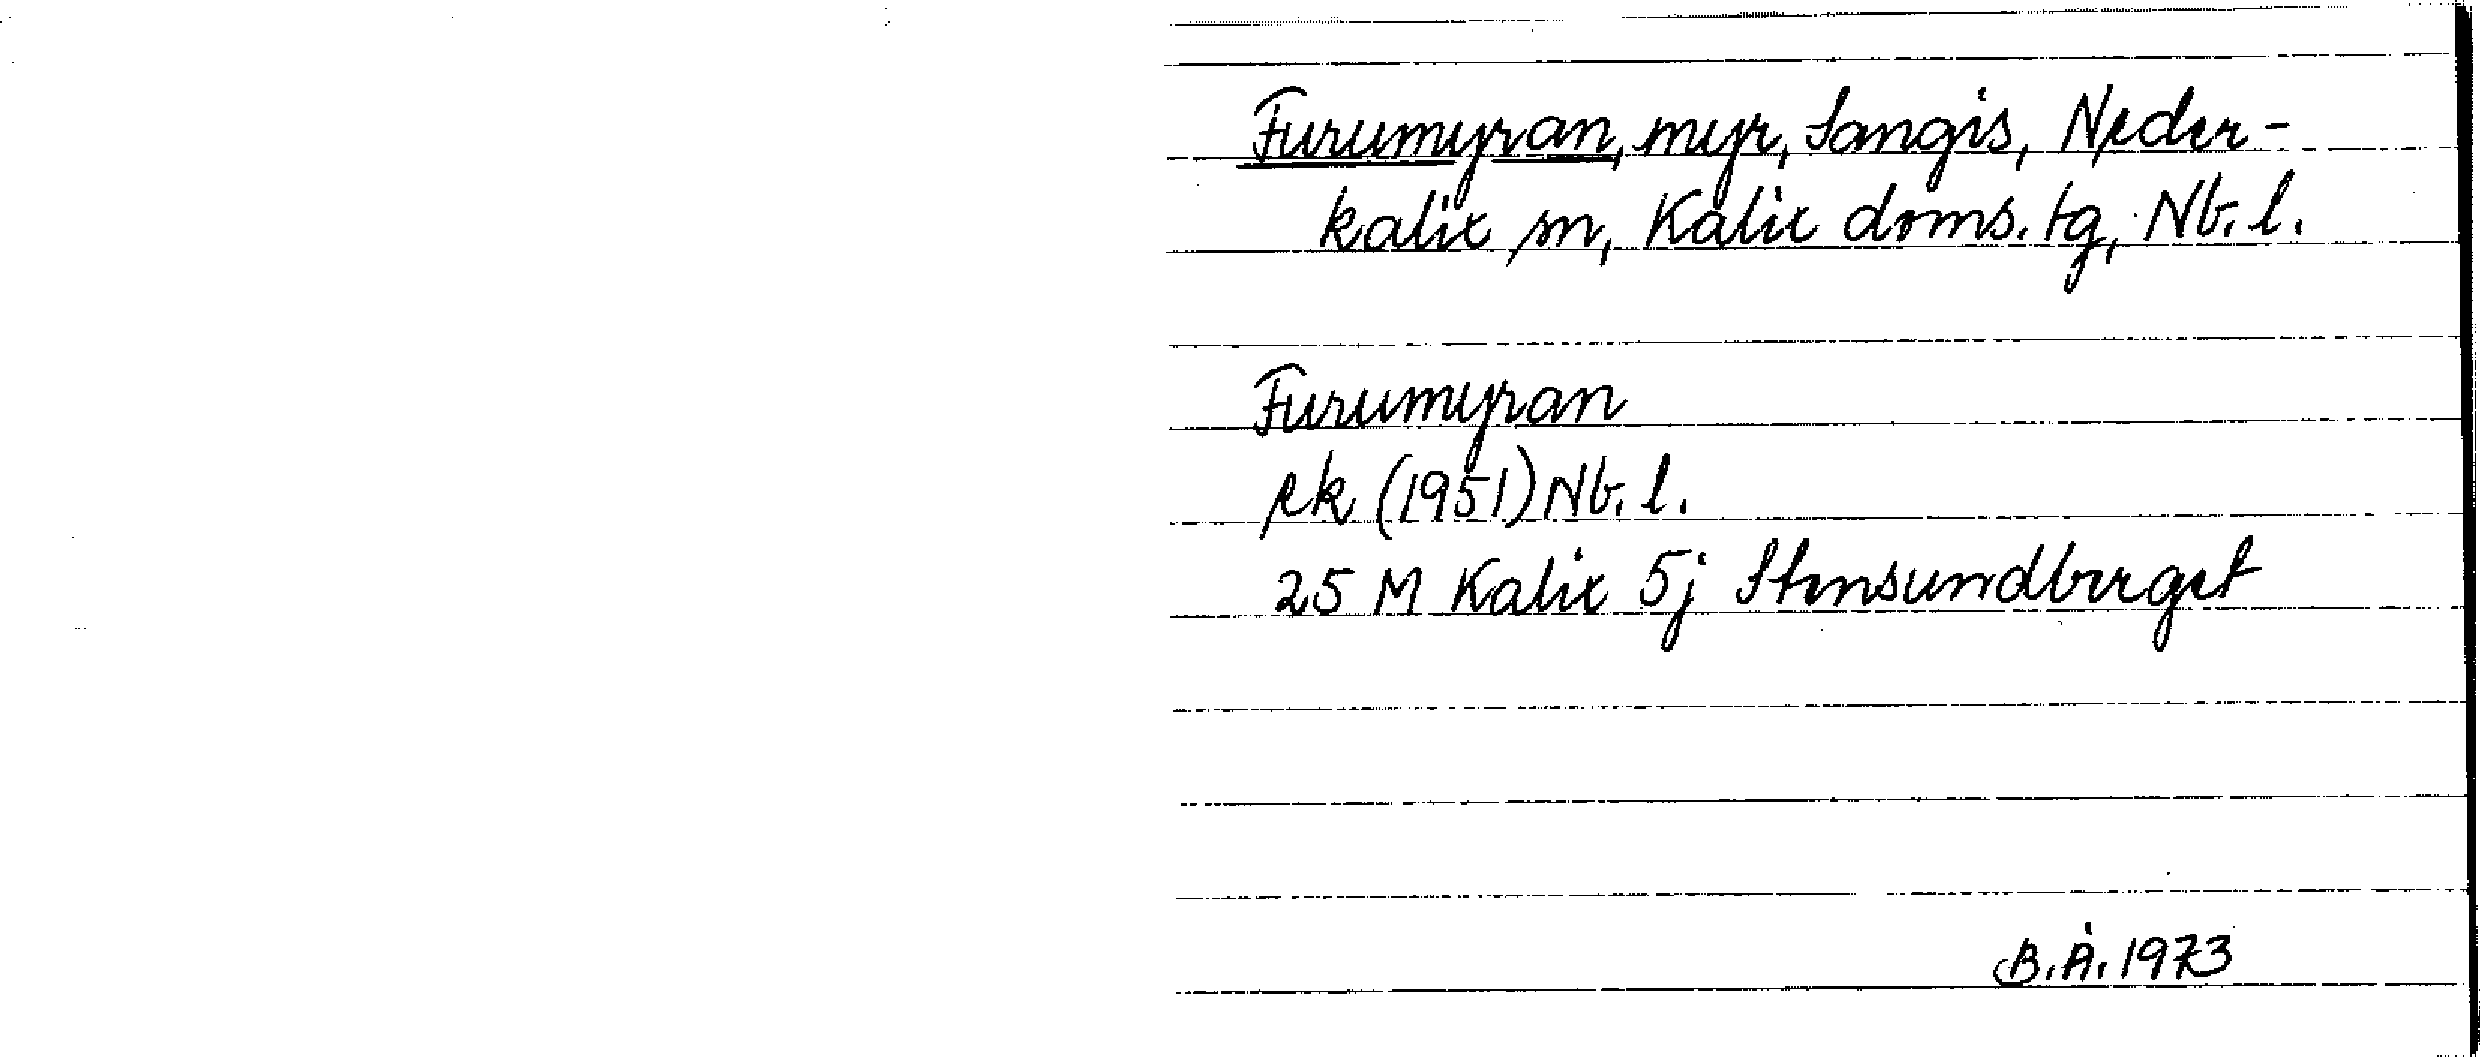 Furumyran, myr, Sangis, Neder-
kalix sn, Kalix doms. tg, Nb. l.
Furumyran
ek (1951) Nb. l.
25 M Kalix 5j Stensundberget
B.Å. 1973